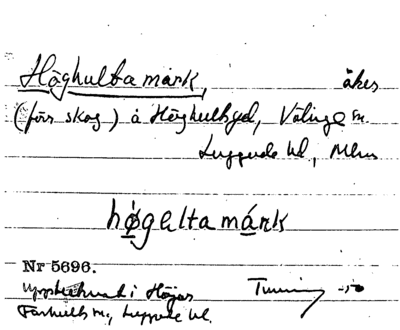 Höghulta mark, åker
(förr skog) å Höghultsgd, Välinge sn.
Luggude hd, Mlhs
høgaltamárk
Nr 5696.
Upptecknat i Höjas
Farhults sn, Luggude hd.